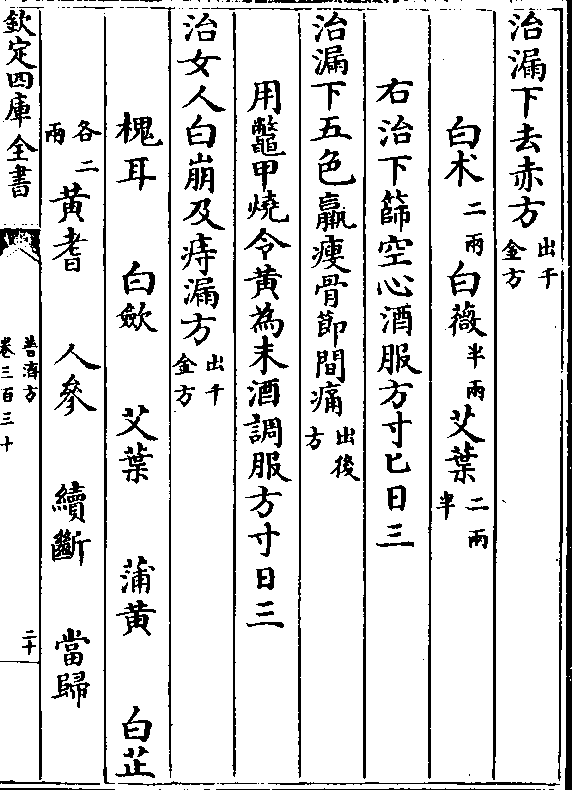 治漏下去赤方出千金方
白术二兩白薇半兩艾葉二兩半
右治下篩空心酒服方寸匕日三
治漏下五色羸瘦骨節間痛出後方
用鼈甲燒令黃為末酒調服方寸日三
治女人白崩及痔漏方出千金方
槐耳 白歛 艾葉 蒲黃 白芷
各二兩黃耆 人參 續斷 當歸
欽定四庫全書 普濟方 卷三百三十 二十